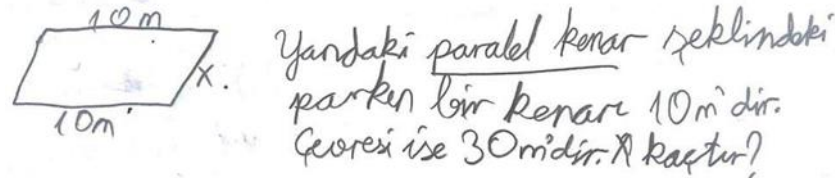 10m
x.
10m
Yandaki paralel kenar şeklindeki
parkın bir kenarı 10m'dir.
Çevresi ise 30m'dir. X kaçtır?